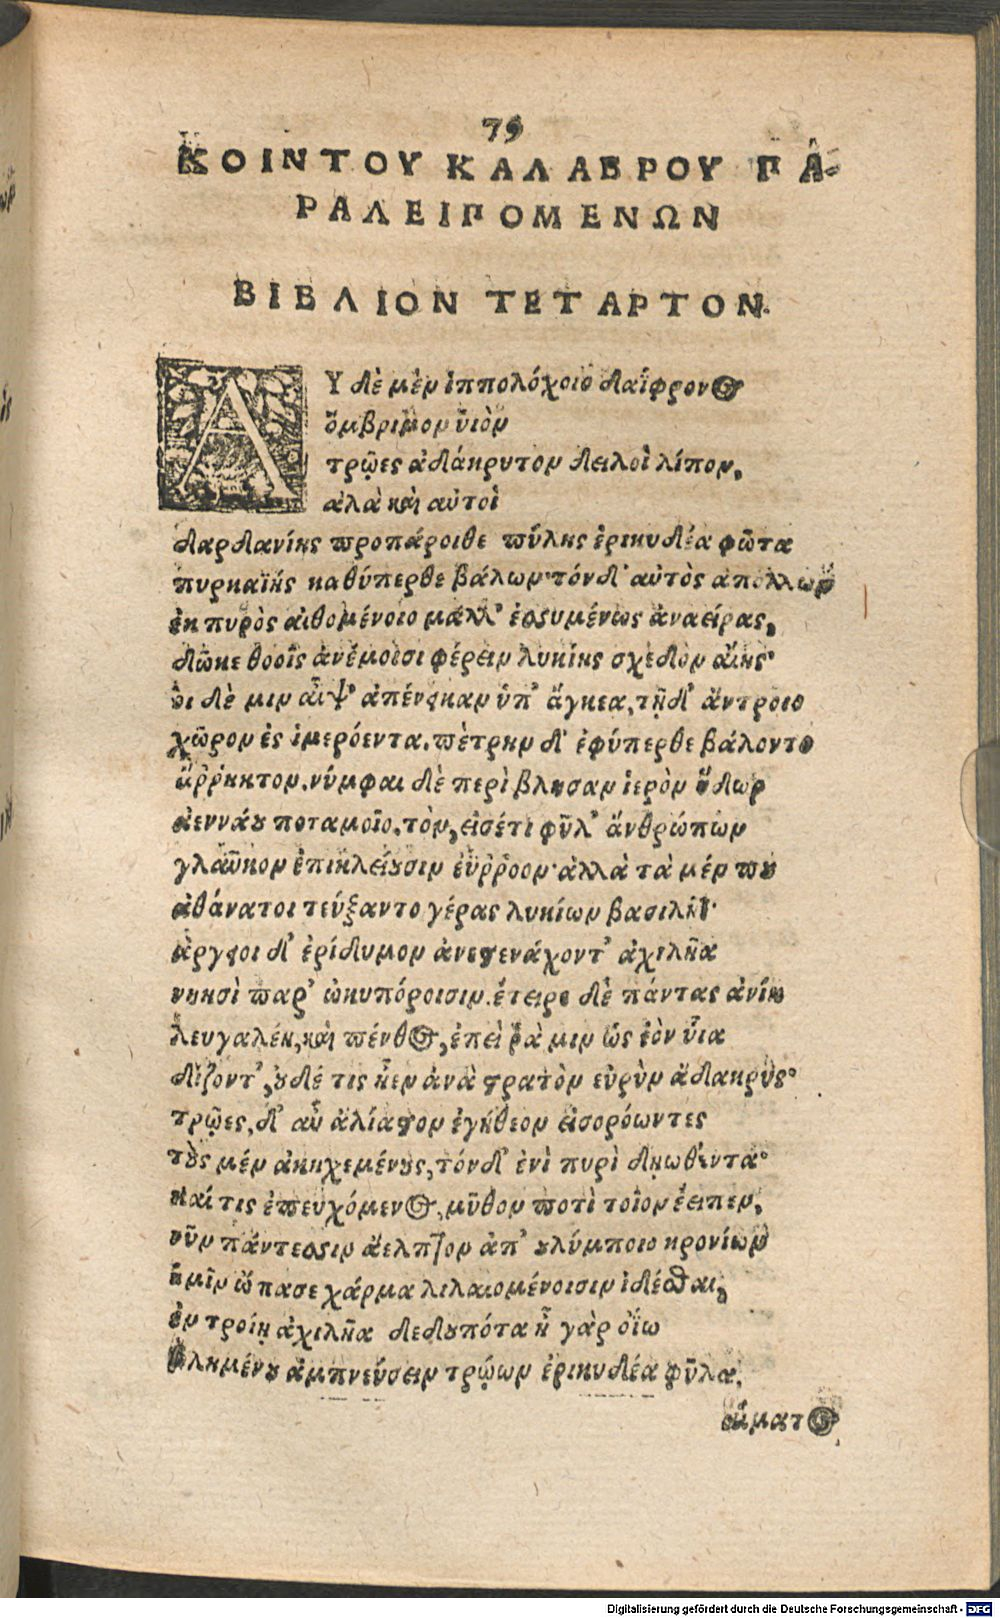 79
ΚΟΙΝΤΟΥ ΚΑΛΑΒΡΟΥ ΠΑ-
ΡΑΛΕΙΠΟΜΕΝΩΝ
ΒΙΒΛΙΟΝ ΤΕΤΑΡΤΟΝ.
ΑΥ δὲ μὲν ἱππολόχοιο δαΐφρονος
ὄμβριμον ὑιὸν
τρῶες ἀδάκρυτον δειλοὶ λίπον,
αλὰ καὶ αὐτοὶ
δαρδανίης προπάροιθε πύλης ἐρικυδέα φῶτα
πυρκαϊῆς καθύπερθε βάλων· τόνδ᾽ αὐτὸς απόλλων
ἐκ πυρὸς αἰθομένοιο μάλλ᾽ ἐσσυμένως ἀναείρας,
δῶκε θοοῖς ἀνέμοισι φέρειν λυκίης σχεδὸν αἴης·
δι δὲ μιν αἶψ᾽ ἀπένεικαν ὑπ᾽ ἄγκεα, τῇδ᾽ ἄντροιο
χῶρον ἐς ἱμερόεντα. πέτρην δ᾽ ἐφύπερθε βάλοντο
ἄῤῥηκτον. νύμφαι δὲ περὶ βλησαν ἱερὸν ὕδωρ
ἀεννάου ποταμοῖο. τὸν, εἰσέτι φῦλ᾽ ἄνθρώπων
γλαῦκον ἐπικλείουσιν ἐΰῤῥοον· ἀλλὰ τὰ μέν που
ἀθάνατοι τεύξαντο γέρας λυκίων βασιλῆι·
ἀργεῖοι δ᾽ ἐρίθυμον ἀνεστενάχοντ᾽ ἀχιλῆα
νηυσὶ παρ᾽ ὠκυπόροισιν. ἔτειρε δὲ πάντας ἀνίη
λευγαλέη, καὶ πένθος, ἐπεὶ ῥὰ μιν ὡς ἑὸν ὗια
δίζοντ᾽, οὐδέ τις ἦεν ἀνὰ στρατὸν εὐρὺν ἄδακρυς·
τρῶες, δ᾽ αὖ ἀλίαστον ἐγήθεον εἰσορόωντες
τοὺς μέν ἀκηχεμένους, τόνδ᾽ ἐνὶ πυρὶ δῃωθέντα·
καί τις ἐπευχόμενος, μῦθον ποτὶ τοῖον ἔειπεν,
νῦν πάντεσσιν ἄελπτον ἀπ᾽ οὐλύμποιο κρονίων
ἡμῖν ὤπασε χάρμα λιλαιομένοισιν ἰδέσθαι,
ἐν τροίῃ ἀχιλῆα δεδουπότα ἦ γὰρ ὀΐω
βλημένου ἀμπνεύσειν τρώων ἐρικυδέα φῦλα.
αἵματος
Digitalisierung gefördert durch die Deutsche Forschungsgemeinschaft - DFG